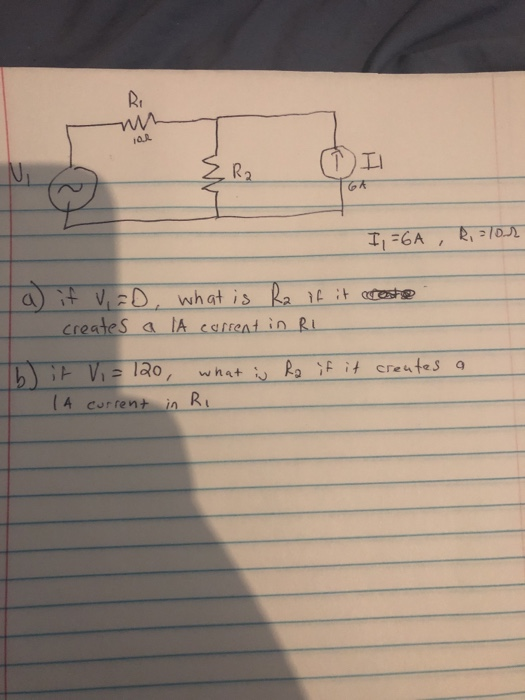 R1
10Ω
V1
R2
I1
6A
I1 = 6A , R1 = 10Ω
a) if V1 = 0, what is R2 if it
creates a 1A current in R1
b) if V1 = 120, what is R2 if it creates a
1A current in R1